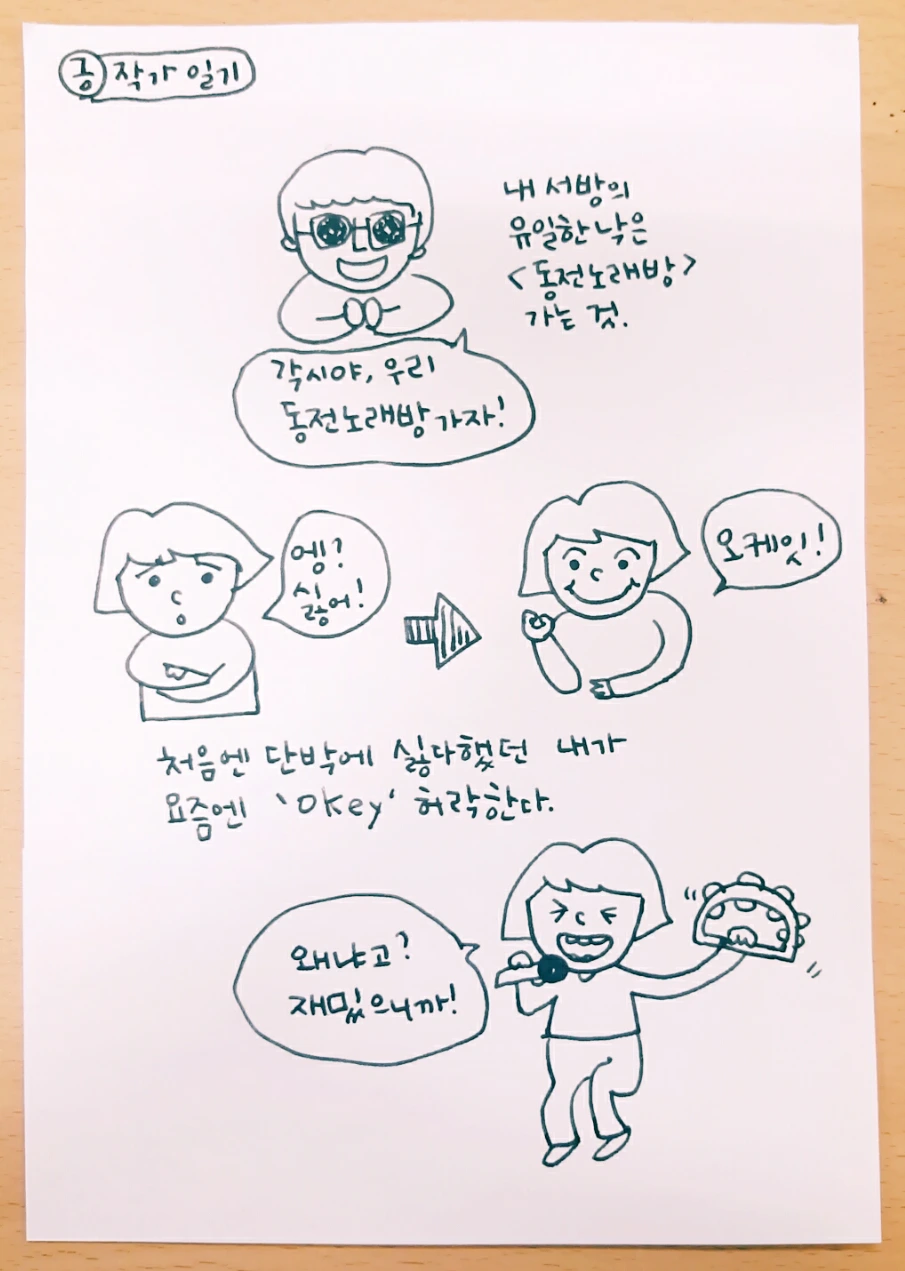 공 작가 일기
내 서방의
유일한 낙은
<동전노래방>
가는 것.
각시야, 우리
동전노래방 가자!
엥?
싫어!
오케잇!
처음엔 단박에 싫다했던 내가
요즘엔 'Okey' 허락한다.
왜냐고?
재밌으니까!